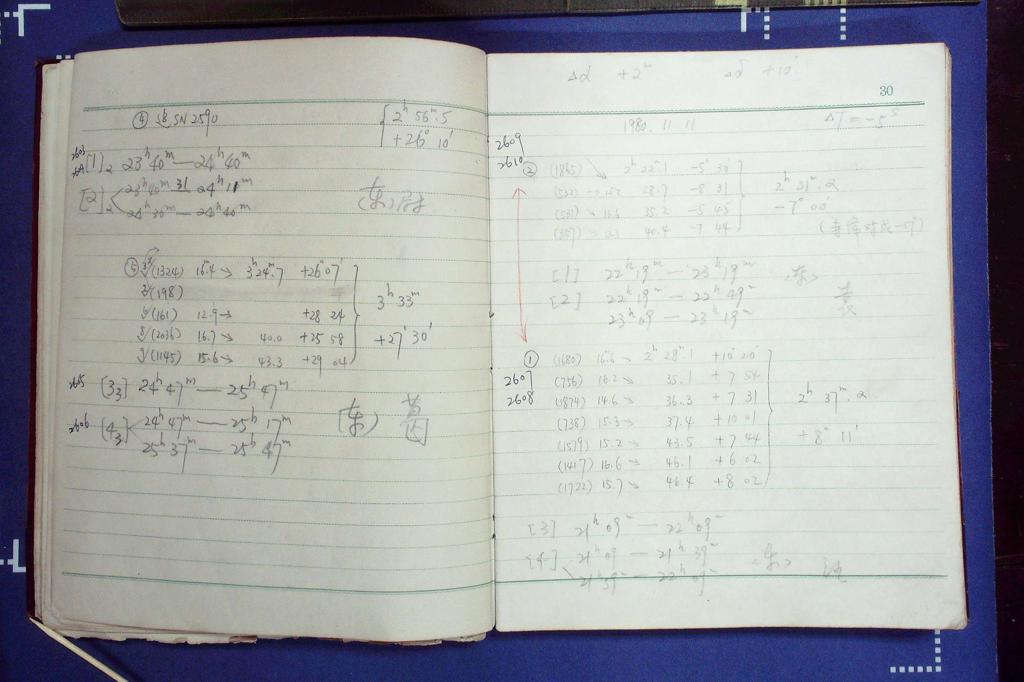 ④ SN 2590
2ʰ 56ᵐ.5
+26° 10′
2603
[1]₂ 23ʰ40ᵐ — 24ʰ40ᵐ
[2]₂ 23ʰ40ᵐ 31 24ʰ11ᵐ
24ʰ30ᵐ — 24ʰ40ᵐ
(东)
⑤ (1324) 16.4 → 3ʰ24ᵐ.7 +26°07′
(198)
(161) 12.9 → +28 24
(2036) 16.7 → 40.0 +25 58
(1145) 15.6 → 43.3 +29 04
3ʰ 33ᵐ
+27° 30′
2605 [3₃] 24ʰ47ᵐ — 25ʰ47ᵐ
2606 [4₃] 24ʰ47ᵐ — 25ʰ17ᵐ
25ʰ37ᵐ — 25ʰ47ᵐ
(东)
Δα +2ᵐ Δδ +10′
30
1980. 11. 11 ΔT = -5ˢ
2609
2610
② (1865) 2ʰ 22ᵐ.1 -5° 30′
28.7 -8 31
35.2 -5 45
40.4 -7 44
2ʰ 31ᵐ.2
-7° 00′
[1] 22ʰ19ᵐ — 23ʰ19ᵐ
[2] 22ʰ19ᵐ — 22ʰ49ᵐ
23ʰ09 — 23ʰ19ᵐ
<东>
①
2607
2608
(1680) 16.6 → 2ʰ 28ᵐ.1 +10° 20′
(756) 16.2 → 35.1 +7 54
(1874) 14.6 → 36.3 +7 31
(738) 15.3 → 37.4 +10 01
(1579) 15.2 → 43.5 +7 44
(1417) 16.6 → 46.1 +6 02
(1722) 15.7 → 46.4 +8 02
2ʰ 37ᵐ.2
+8° 11′
[3] 21ʰ09ᵐ — 22ʰ09ᵐ
[4] 21ʰ09 — 21ʰ39ᵐ
21ʰ59ᵐ — 22ʰ09ᵐ
<东>